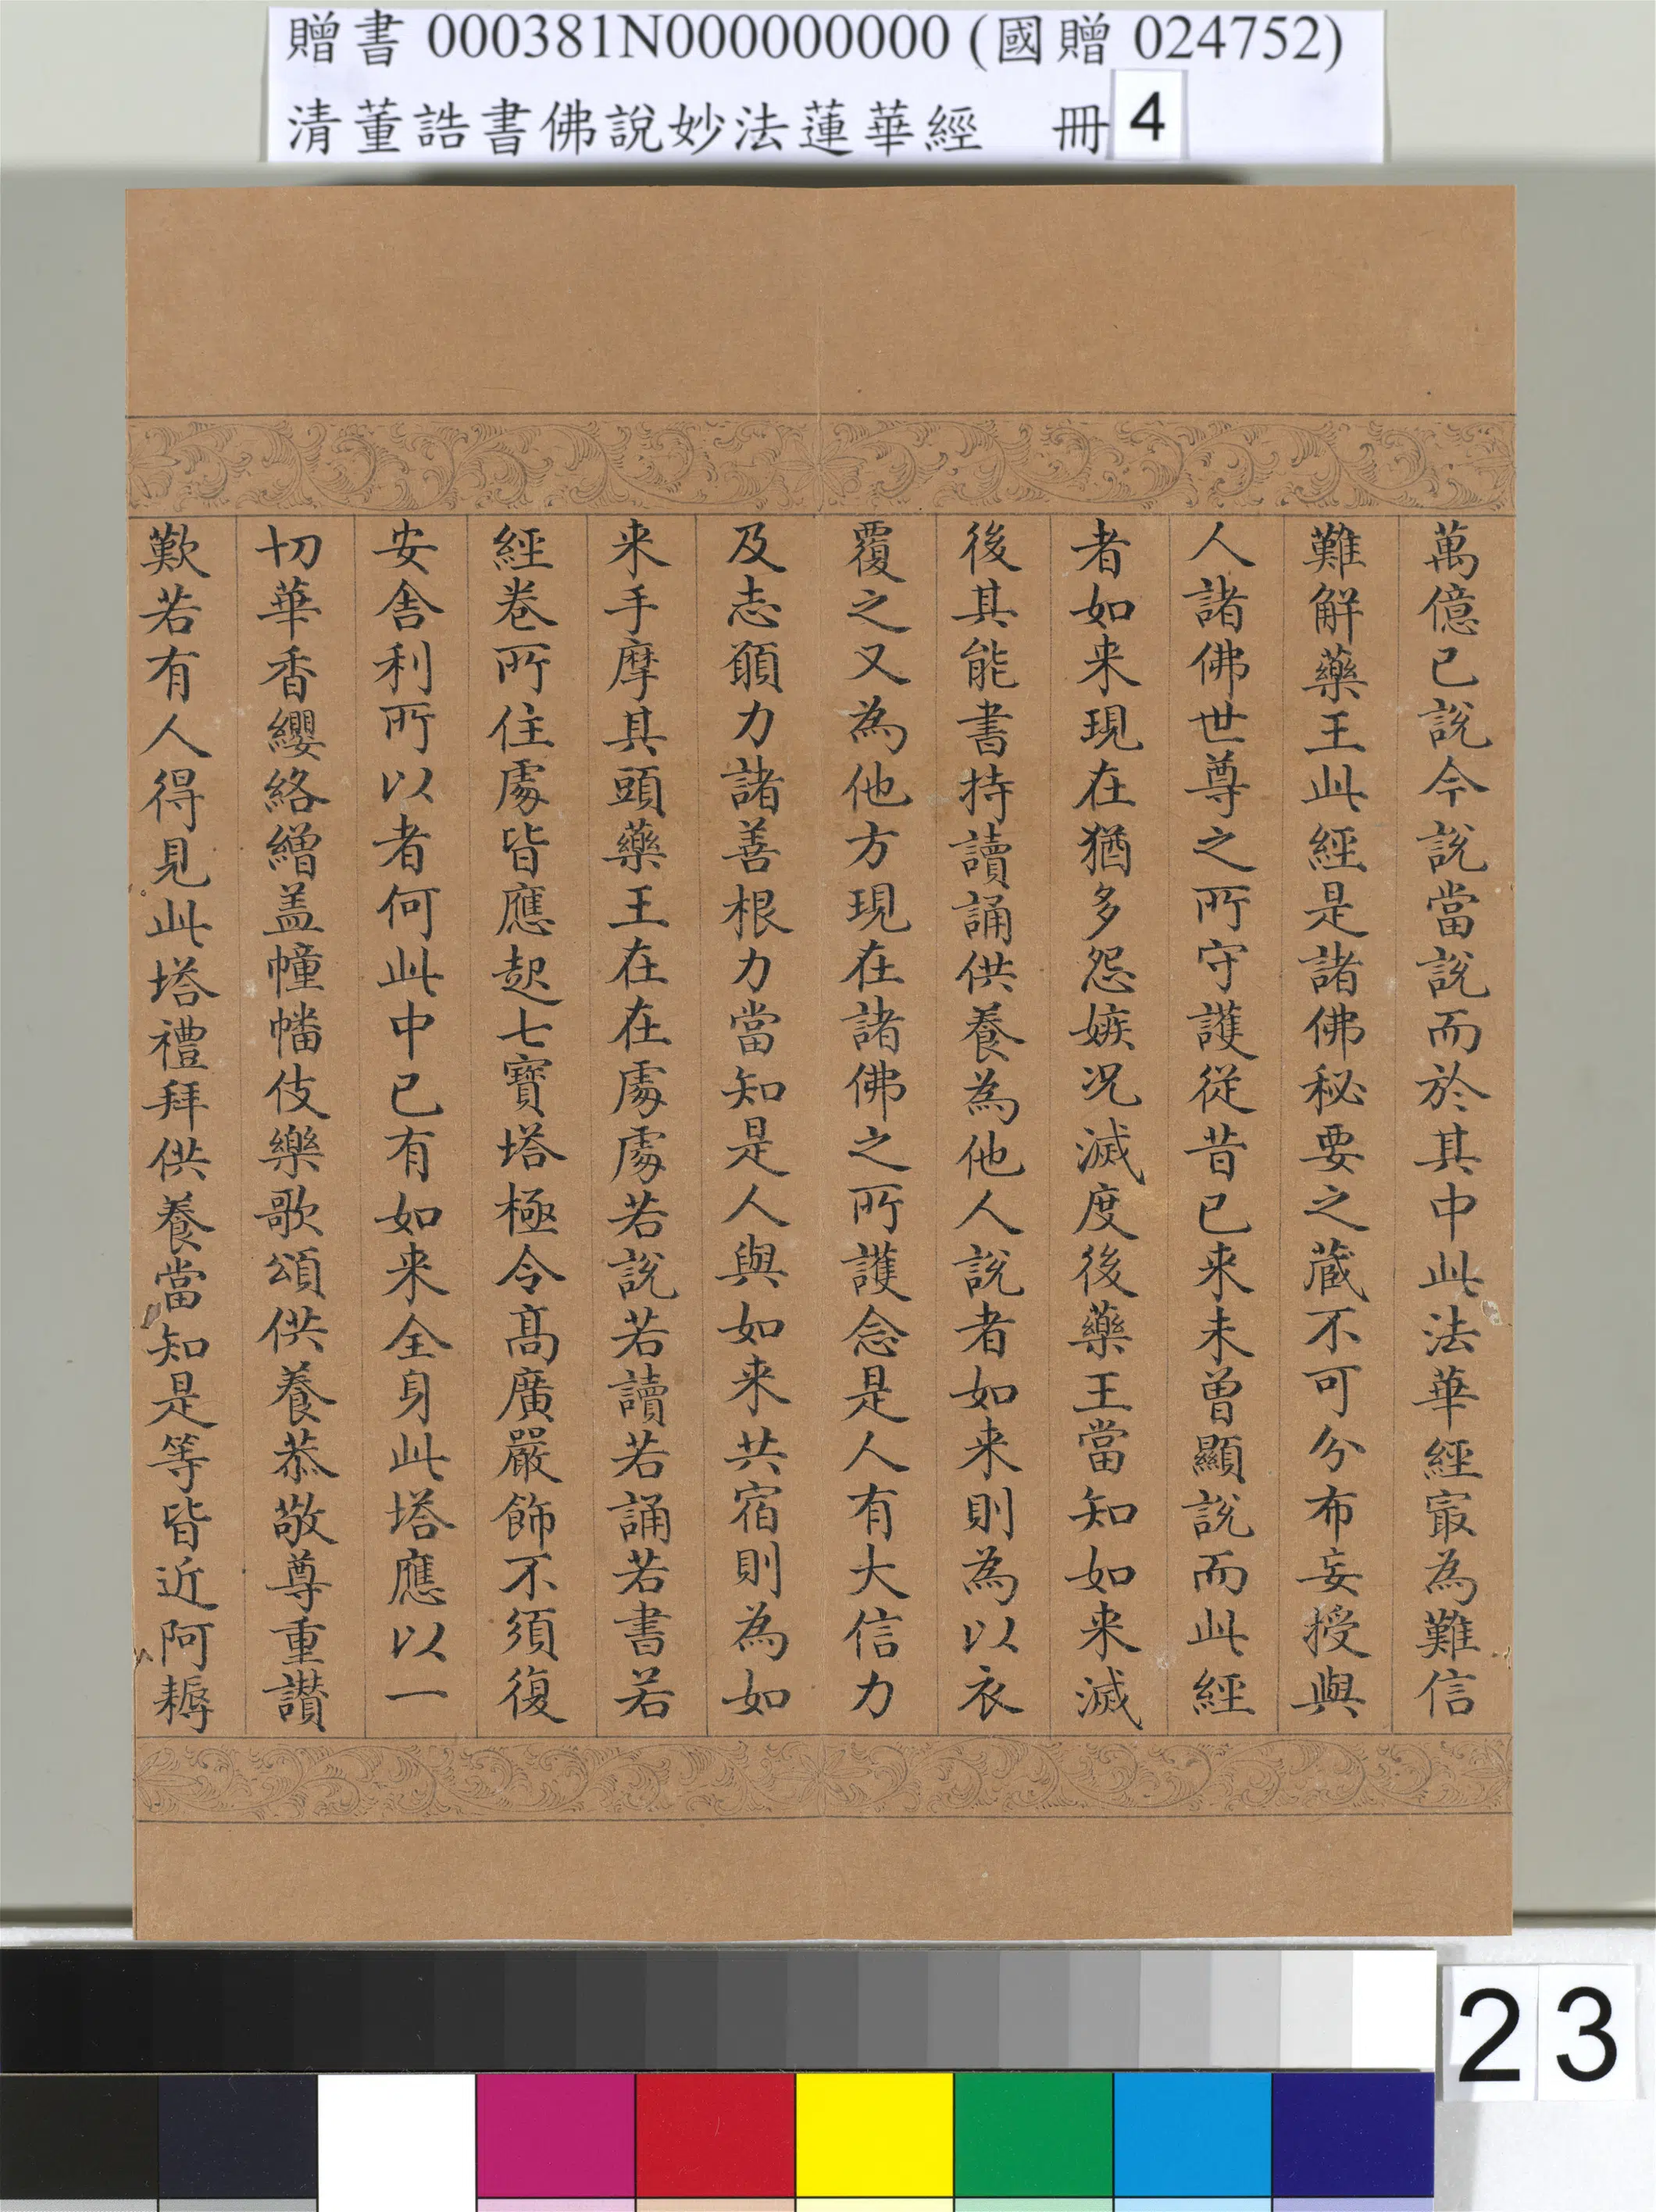 贈書 000381N000000000 (國贈 024752)
清董誥書佛說妙法蓮華經 冊 4
萬億已說今說當說而於其中此法華經㝡為難信
難解藥王此經是諸佛秘要之蔵不可分布妄授與
人諸佛世尊之所守護從昔已来未曾顯說而此經
者如来現在猶多怨嫉况滅度後藥王當知如来滅
後其能書持讀誦供養為他人說者如来則為以衣
覆之又為他方現在諸佛之所護念是人有大信力
及志願力諸善根力當知是人與如来共宿則為如
来手摩其頭藥王在在處處若說若讀若誦若書若
經卷所住處皆應起七寶塔極令髙廣嚴飾不須復
安舍利所以者何此中已有如来全身此塔應以一
切華香纓絡繒盖幢幡伎樂歌頌供養恭敬尊重讃
歎若有人得見此塔禮拜供養當知是等皆近阿耨
23